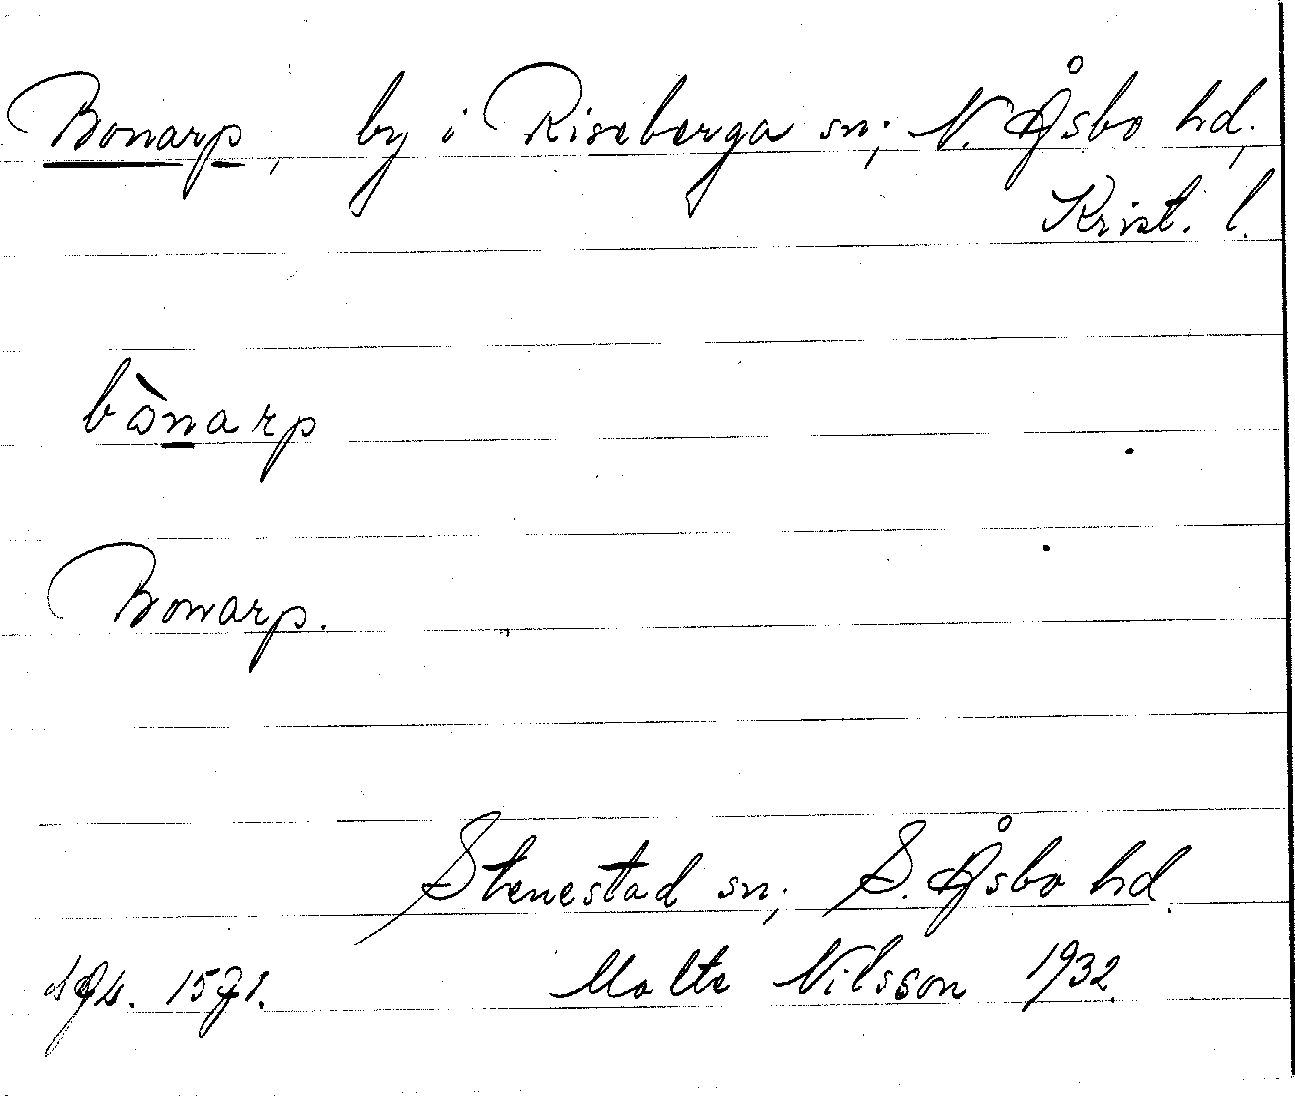 Bonarp, by i Riseberga sn; N. Åsbo hd.,
Krist. l.
bònarp
Bonarp.
Stenestad sn; S. Åsbo hd.
1571.
Malte Nilsson 1932.